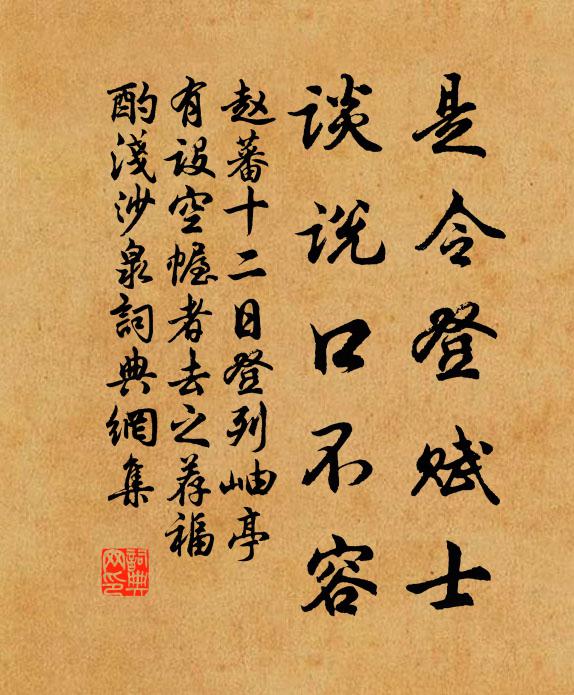 是令登赋士
谈说口不容
赵蕃十二日登列岫亭
有设空幄者去之荐福
酌浅沙泉詞典網集
詞典网印